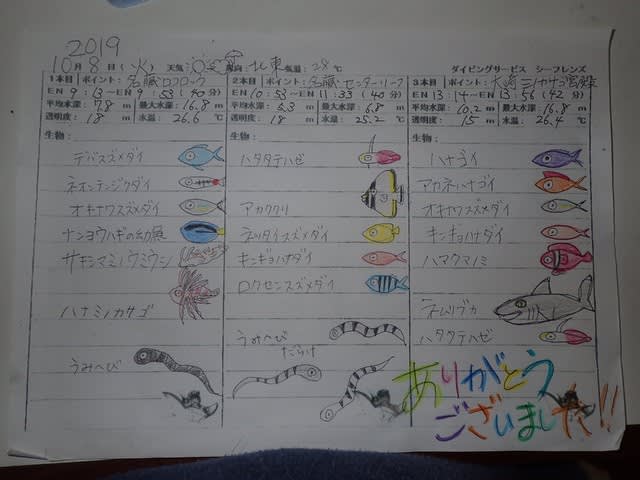 2019
10月 8日 (火) 天気 風向 北東 気温: 28 ℃ ダイビングサービス シーフレンズ
1本目 ポイント: 名蔵ロブロック
EN 9:13~EN 9:53 (40分)
平均水深: 7.8 m 最大水深: 16.8 m
透明度: 18 m 水温: 26.6 ℃
生物:
デバスズメダイ
ネオンテンジクダイ
オキナワスズメダイ
ナンヨウハギの幼魚
サキシマミノウミウシ
ハナミノカサゴ
うみへび
2本目 ポイント: 名蔵センターリーフ
EN 10:53~EN 11:33 (40分)
平均水深: 5.3 m 最大水深: 6.8 m
透明度: 18 m 水温: 25.2 ℃
生物:
ハタタテハゼ
アカククリ
ネッタイスズメダイ
キンギョハナダイ
ロクセンスズメダイ
うみへび
だらけ
3本目 ポイント: 大崎
EN 13:14~EN 13:56 (42分)
平均水深: 10.2 m 最大水深: 16.8 m
透明度: 15 m 水温: 26.4 ℃
生物:
ハナゴイ
アカネハナゴイ
オキナワスズメダイ
キンギョハナダイ
ハマクマノミ
ネムリブカ
ハタタテハゼ
ありがとう
ございました!!